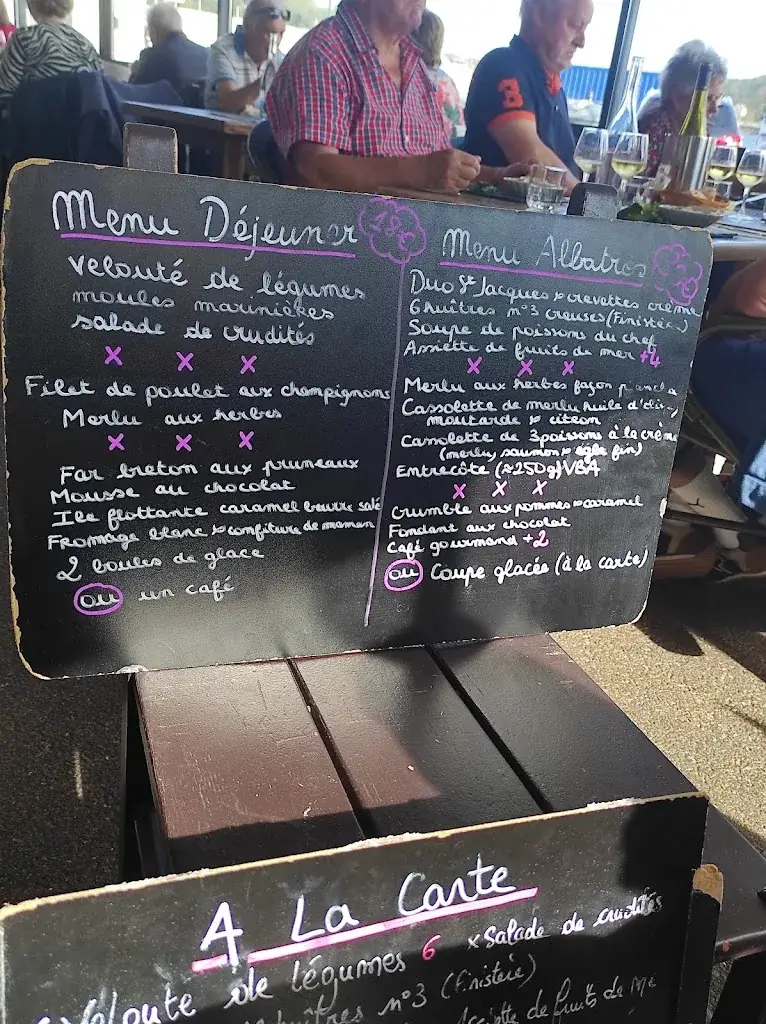 Menu Déjeuner
velouté de légumes
moules marinières
salade de crudités
x x x
Filet de poulet aux champignons
Merlu aux herbes
x x x
Far breton aux pruneaux
Mousse au chocolat
Ile flottante caramel beurre salé
Fromage blanc x confiture de maman
2 boules de glace
ou un café
Menu Albatros
Duo St Jacques x crevettes crème
6 huîtres n°3 creuses (Finistère)
Soupe de poissons du chef
Assiette de fruits de mer +4
x x x
Merlu aux herbes façon
Cassolette de merlu huile d'
moutarde x citron
Cassolette de 3 poissons à la crème
(merlu, saumon x egle fin)
Entrecôte (≈250g) VBA
x x x
Crumble aux pommes x caramel
Fondant au chocolat
Café gourmand +2
ou Coupe glacée (à la carte)
3
A La Carte
Velouté de légumes 6 x Salade de crudités
huîtres n°3 (Finistère)
Assiette de fruits de